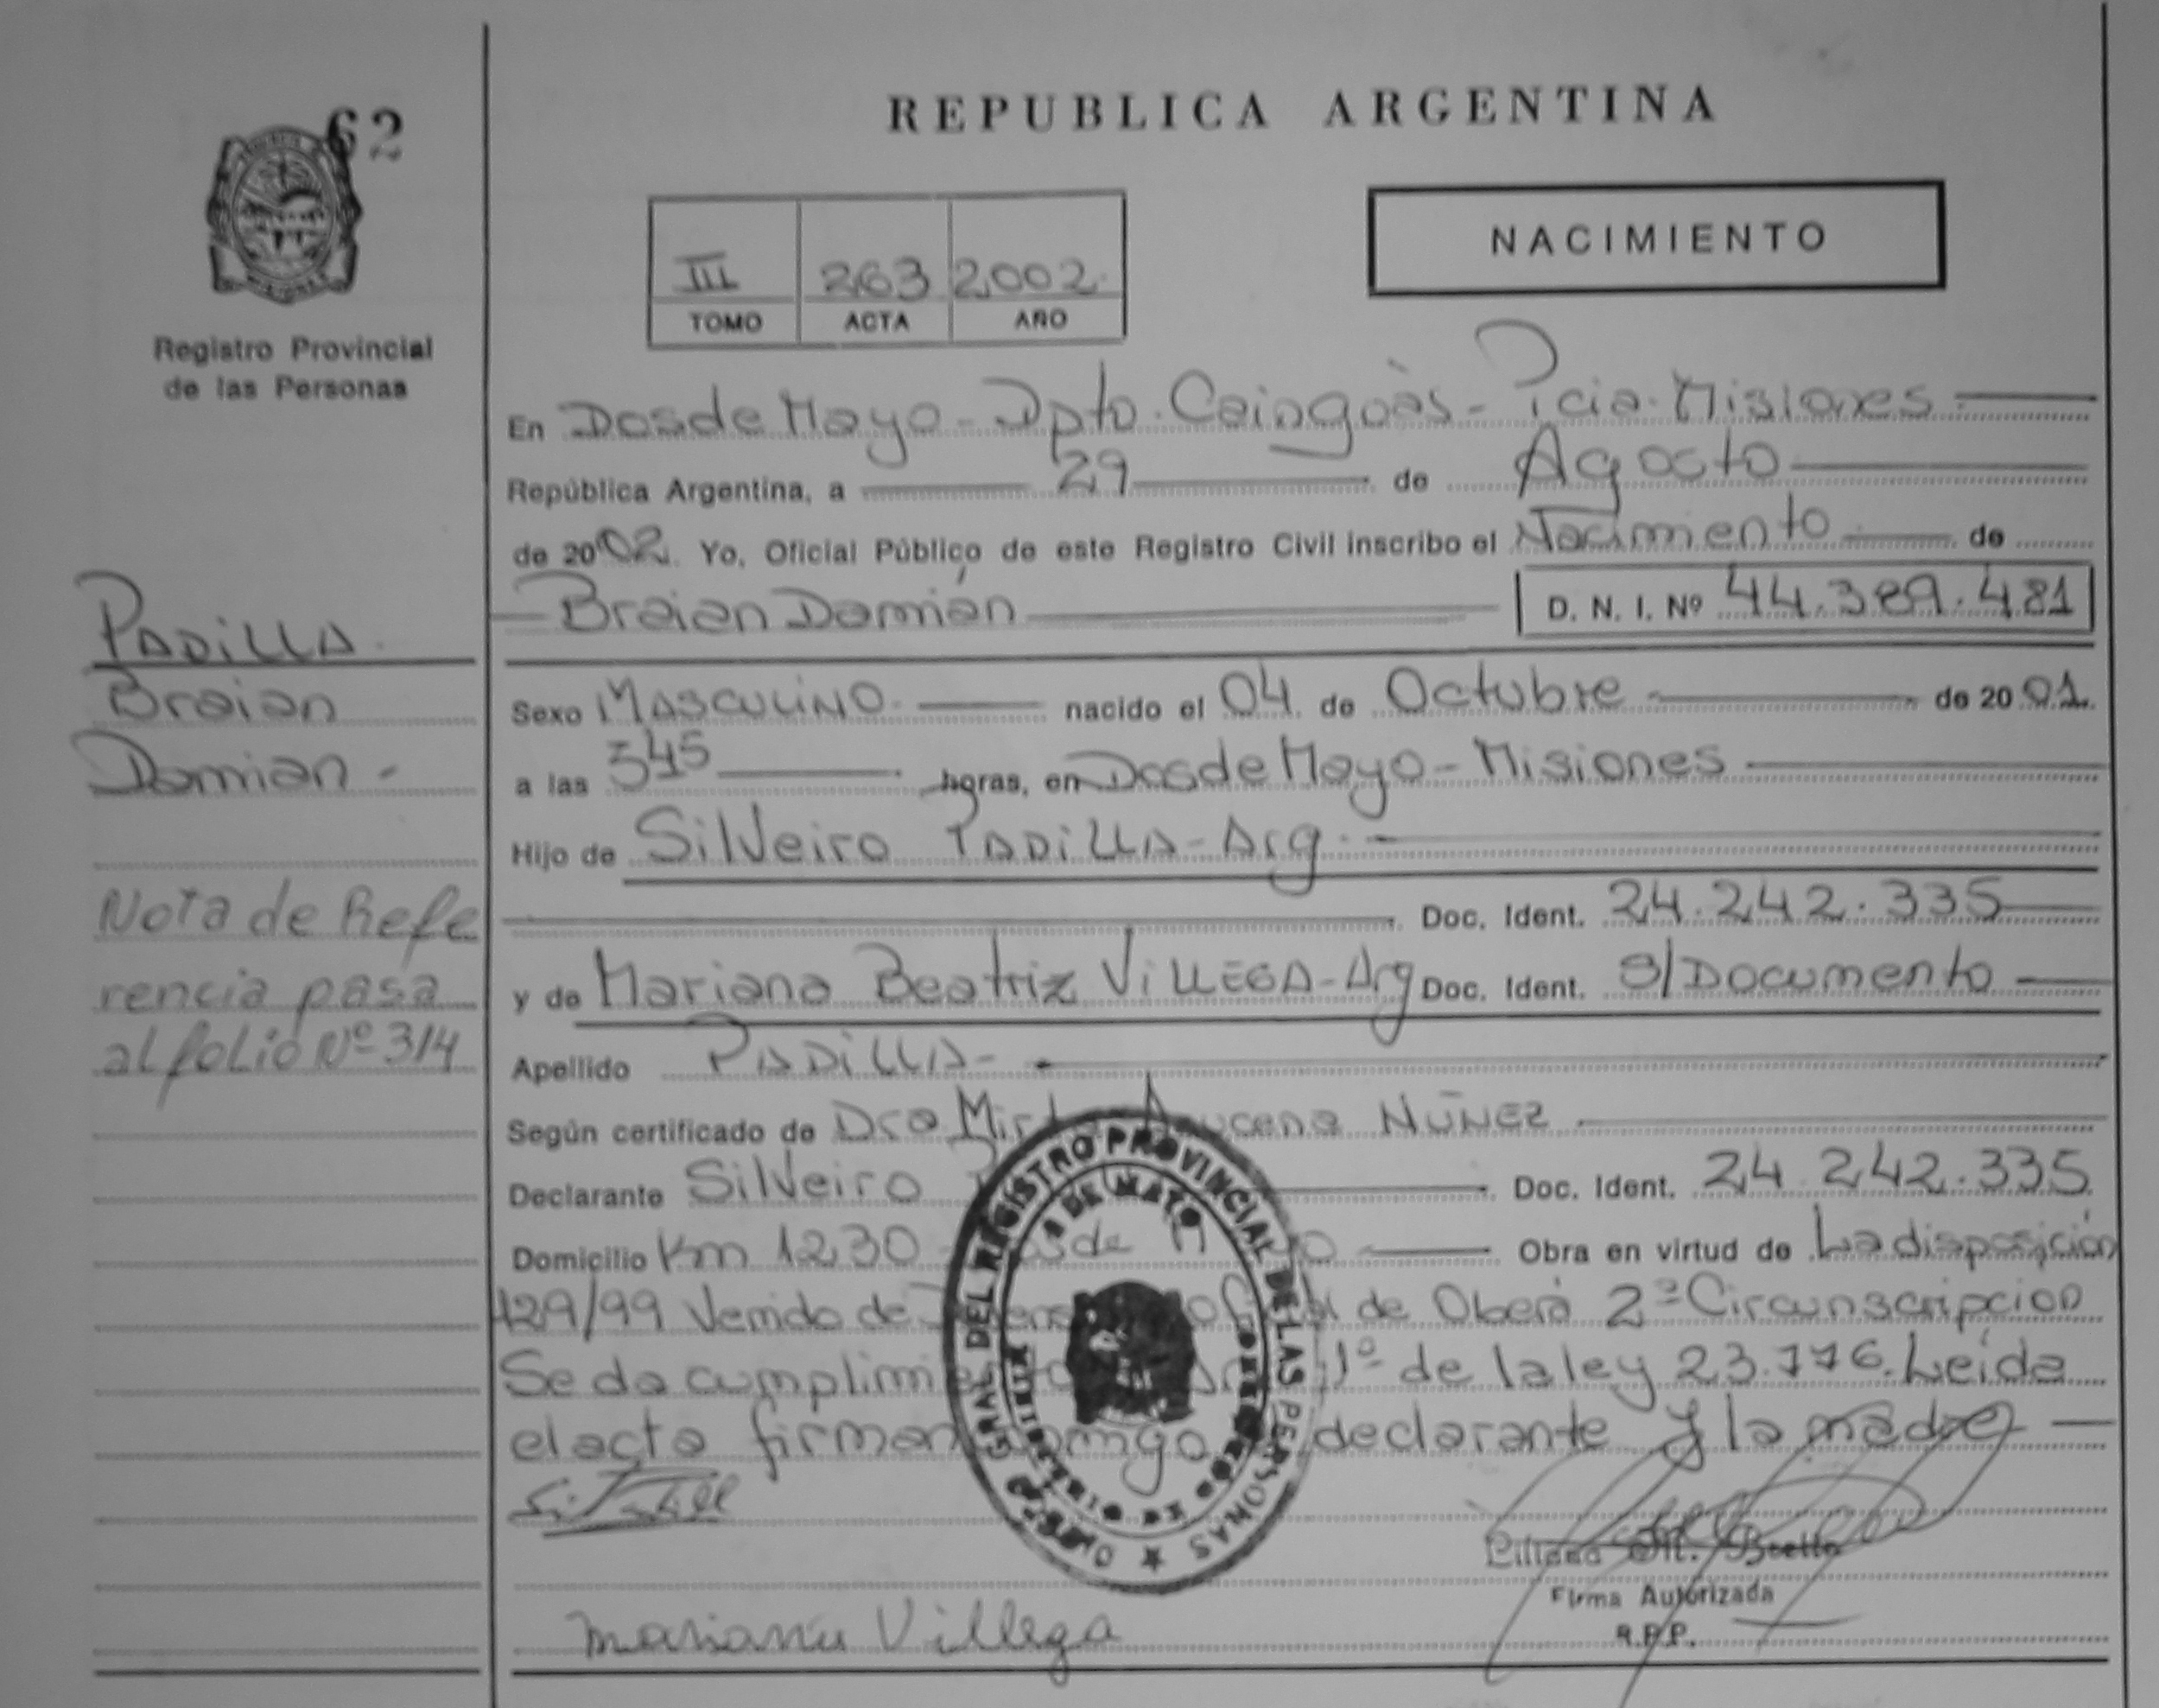 62
REPUBLICA ARGENTINA
NACIMIENTO
III 263 2002
TOMO ACTA AÑO
Registro Provincial
de las Personas
En Dos de Mayo - Dpto. Caingoàs - Pcia. Misiones
República Argentina, a 29 de Agosto
de 2002. Yo, Oficial Público de este Registro Civil inscribo el Nacimiento de
Braian Damian D. N. I. Nº 44.389.481
PADILLA
Braian
Damian -
Sexo MASCULINO nacido el 04 de Octubre de 2001.
a las 345 horas, en Dos de Mayo - Misiones
Hijo de Silveiro PADILLA - Arg
Doc. Ident. 24.242.335
y de Mariana Beatriz VILLEGA - Arg Doc. Ident. S/Documento
Apellido PADILLA -
Nota de Refe
rencia pasa
al folio Nº 314
Según certificado de Dra NÚÑEZ
Declarante Silveiro Doc. Ident. 24 242.335
Domicilio Km 1230 Obra en virtud de La disposición
129/99 Venido de de Oberá 2ª Circunscripcion
Se da 1º de la ley 23.776. Leída
el acta firman declarante y la madre
DIREC GRAL DEL REGISTRO PROVINCIAL DE LAS PERSONAS
Firma Autorizada
R.P.P.
Mariana Villega